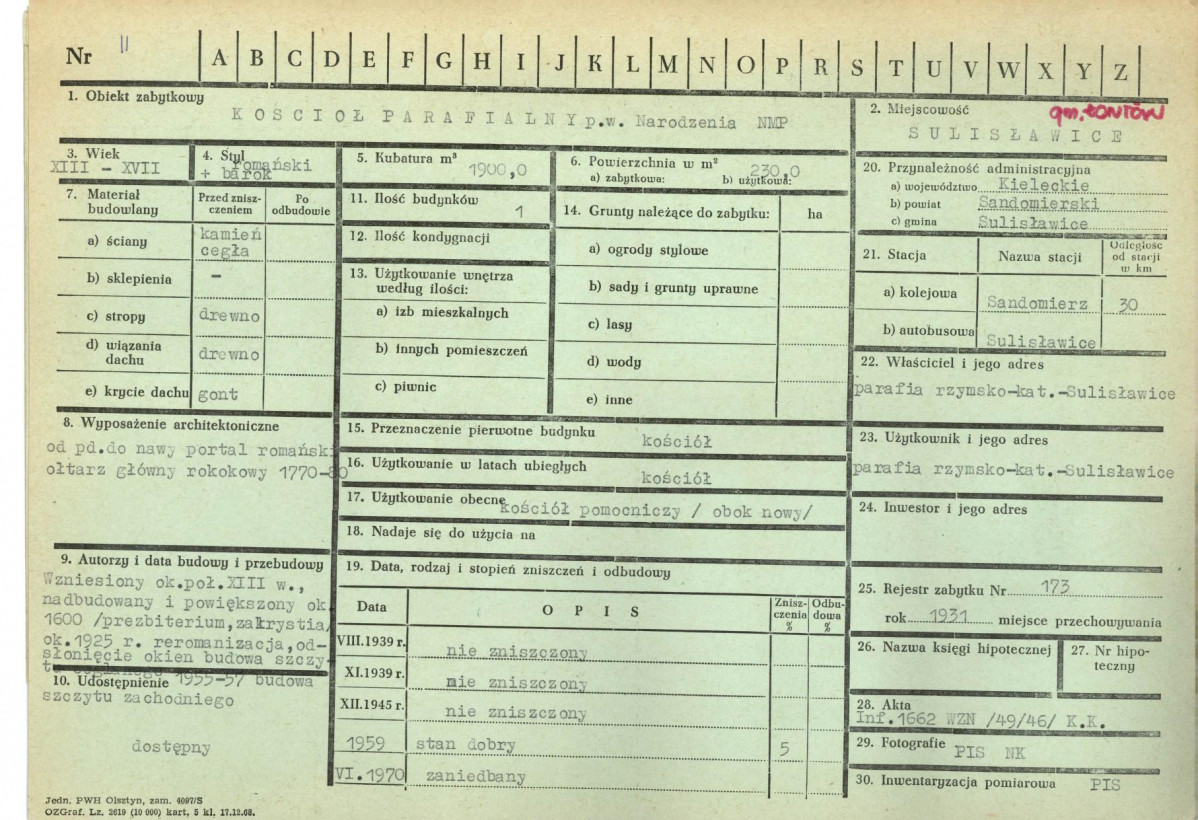 Nr 11 A B C D E F G H I J K L M N O P R S T U V W X Y Z
1. Obiekt zabytkowy
KOSCIOŁ PARAFIALNY p.w. Narodzenia NMP
2. Miejscowość
gm. ŁONIÓW
SULISŁAWICE
3. Wiek
XIII - XVII
4. Styl
romański
+ barok
5. Kubatura m³
1900,0
6. Powierzchnia w m²
230,0
a) zabytkowa: b) użytkowa:
7. Materiał budowlany
Przed zniszczeniem
Po odbudowie
a) ściany
kamień
cegła
b) sklepienia
-
c) stropy
drewno
d) wiązania dachu
drewno
e) krycie dachu
gont
8. Wyposażenie architektoniczne
od pd.do nawy portal romański
ołtarz główny rokokowy 1770-80
9. Autorzy i data budowy i przebudowy
Wzniesiony ok.poł.XIII w.,
nadbudowany i powiększony ok.
1600 /prezbiterium,zakrystia/
ok.1925 r. reromanizacja,od-
słonięcie okien budowa szczy-
1955-57 budowa
szczytu zachodniego
10. Udostępnienie
dostępny
11. Ilość budynków
1
12. Ilość kondygnacji
13. Użytkowanie wnętrza według ilości:
a) izb mieszkalnych
b) innych pomieszczeń
c) piwnic
14. Grunty należące do zabytku:
ha
a) ogrody stylowe
b) sady i grunty uprawne
c) lasy
d) wody
e) inne
15. Przeznaczenie pierwotne budynku
kościół
16. Użytkowanie w latach ubiegłych
kościół
17. Użytkowanie obecne
kościół pomocniczy / obok nowy/
18. Nadaje się do użycia na
19. Data, rodzaj i stopień zniszczeń i odbudowy
Data
OPIS
Zniszczenia %
Odbudowa %
VIII.1939 r.
nie zniszczony
XI.1939 r.
nie zniszczony
XII.1945 r.
nie zniszczony
1959
stan dobry
5
VI.1970
zaniedbany
20. Przynależność administracyjna
a) województwo Kieleckie
b) powiat Sandomierski
c) gmina Sulisławice
21. Stacja
Nazwa stacji
Odległość od stacji w km
a) kolejowa
Sandomierz
30
b) autobusowa
Sulisławice
22. Właściciel i jego adres
parafia rzymsko-kat.-Sulisławice
23. Użytkownik i jego adres
parafia rzymsko-kat.-Sulisławice
24. Inwestor i jego adres
25. Rejestr zabytku Nr 173
rok 1931 miejsce przechowywania
26. Nazwa księgi hipotecznej
27. Nr hipoteczny
28. Akta
Inf.1662 WZN /49/46/ K.K.
29. Fotografie PIS NK
30. Inwentaryzacja pomiarowa PIS
Jedn. PWH Olsztyn, zam. 4097/S
OZGraf. Lz. 2619 (10 000) kart, 5 kl. 17.12.68.